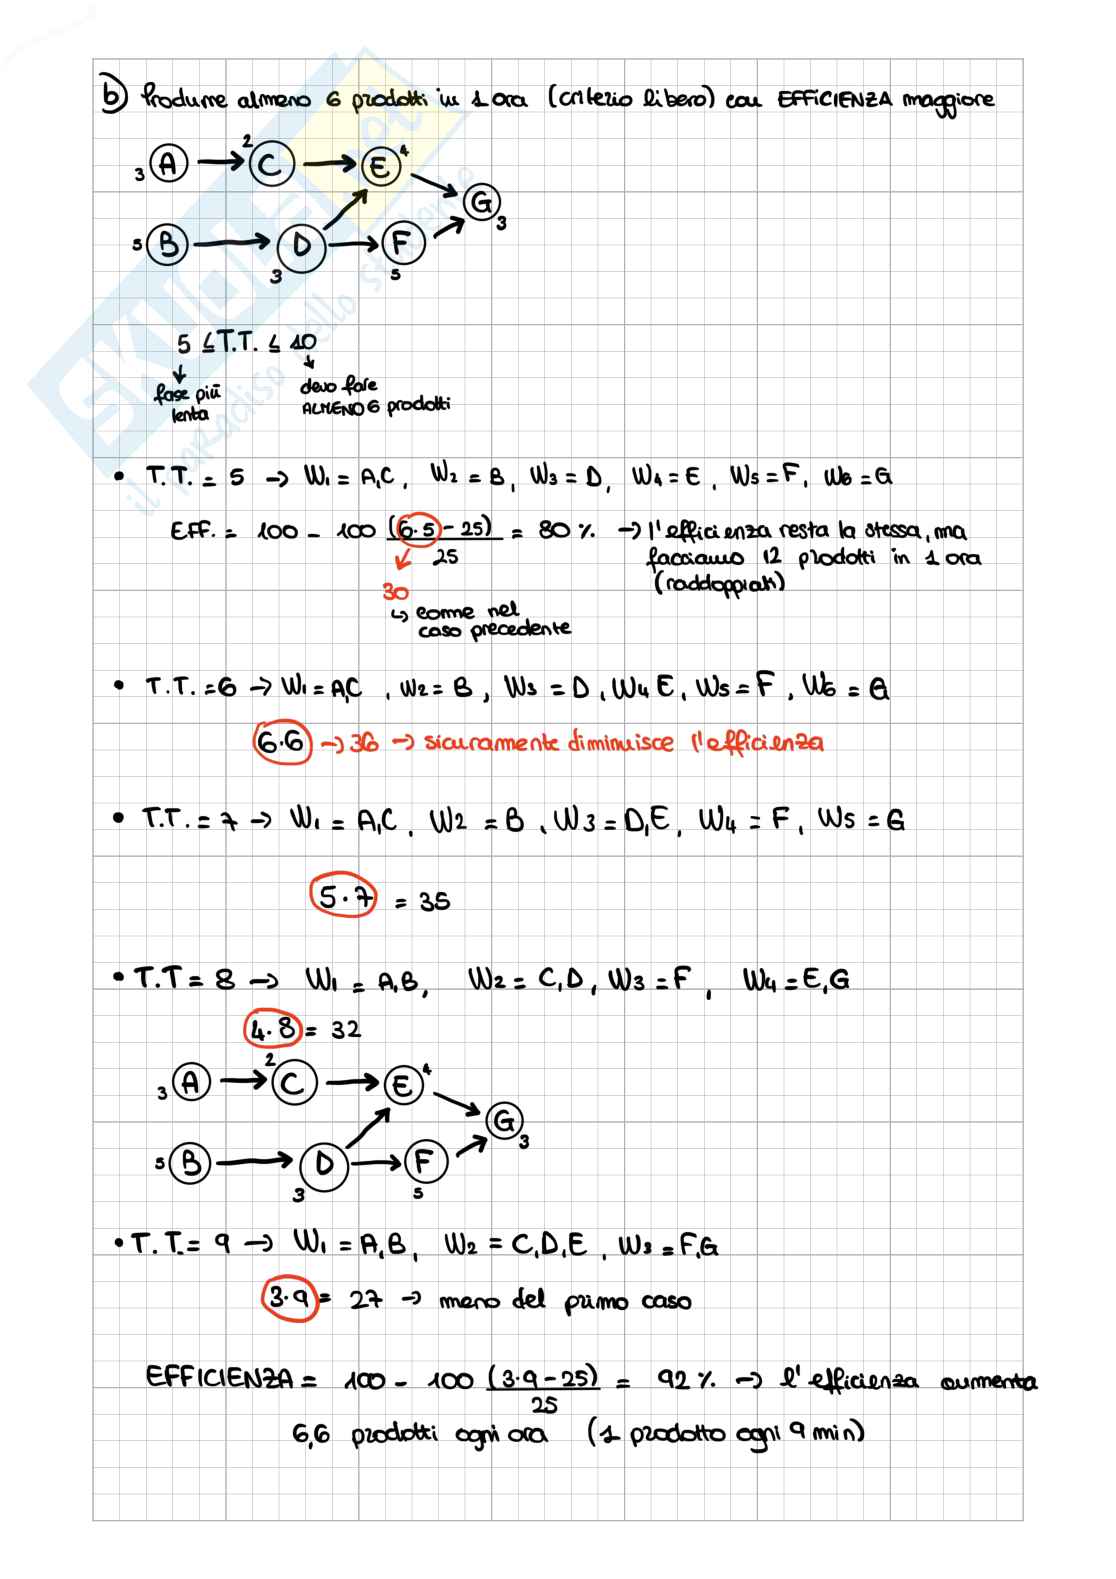 b) Produrre almeno 6 prodotti in 1 ora (criterio libero) con EFFICIENZA maggiore
3 A → 2 C → E 4
G 3
5 B → D 3 → F 5
5 ≤ T.T. ≤ 10
fase più lenta
devo fare ALMENO 6 prodotti
• T.T. = 5 → W1 = A,C, W2 = B, W3 = D, W4 = E, W5 = F, W6 = G
EFF. = 100 - 100 (6·5 - 25) / 25 = 80 % → l'efficienza resta la stessa, ma
facciamo 12 prodotti in 1 ora
(raddoppiati)
30
↳ come nel
caso precedente
• T.T. = 6 → W1 = A,C , W2 = B, W3 = D, W4 E, W5 = F, W6 = G
6·6 → 36 → sicuramente diminuisce l'efficienza
• T.T. = 7 → W1 = A,C, W2 = B, W3 = D,E, W4 = F, W5 = G
5·7 = 35
• T.T = 8 → W1 = A,B, W2 = C,D, W3 = F, W4 = E,G
4·8 = 32
3 A → 2 C → E 4
G 3
5 B → D 3 → F 5
• T.T. = 9 → W1 = A,B, W2 = C,D,E, W3 = F,G
3·9 = 27 → meno del primo caso
EFFICIENZA = 100 - 100 (3·9 - 25) / 25 = 92 % → l'efficienza aumenta
6,6 prodotti ogni ora (1 prodotto ogni 9 min)
SKUOLA.net
il paradiso dello studente